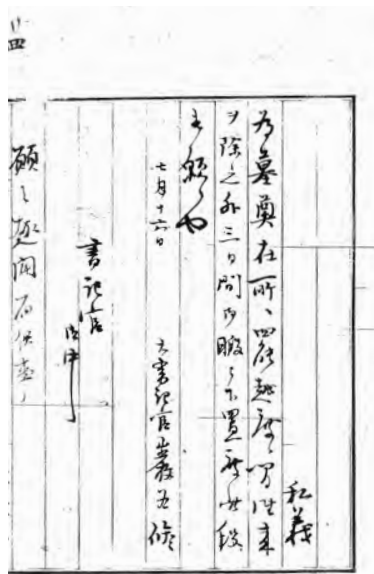 私義
為墓奠在所ヘ罷越度ク間往来
ヲ除之外三日間御暇被下置度此段
奉願候也
七月十六日
大書記官巌谷脩
書記官
御中
願之趣聞届候事